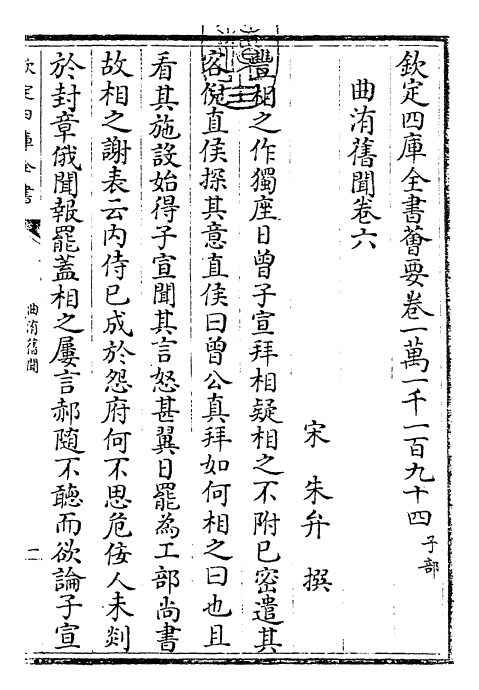 欽定四庫全書薈要卷一萬一千一百九十四子部
曲洧舊聞卷六
宋朱弁撰
豐相之作獨座日曾子宣拜相疑相之不附已密遣其
客倪直侯探其意直侯曰曾公真拜如何相之曰也且
看其施設始得子宣聞其言怒甚翼日罷為工部尚書
故相之謝表云内侍已成於怨府何不思危佞人未剡
於封章俄聞報罷蓋相之屢言郝隨不聽而欲論子宣
欽定四庫全書
曲洧舊聞
一